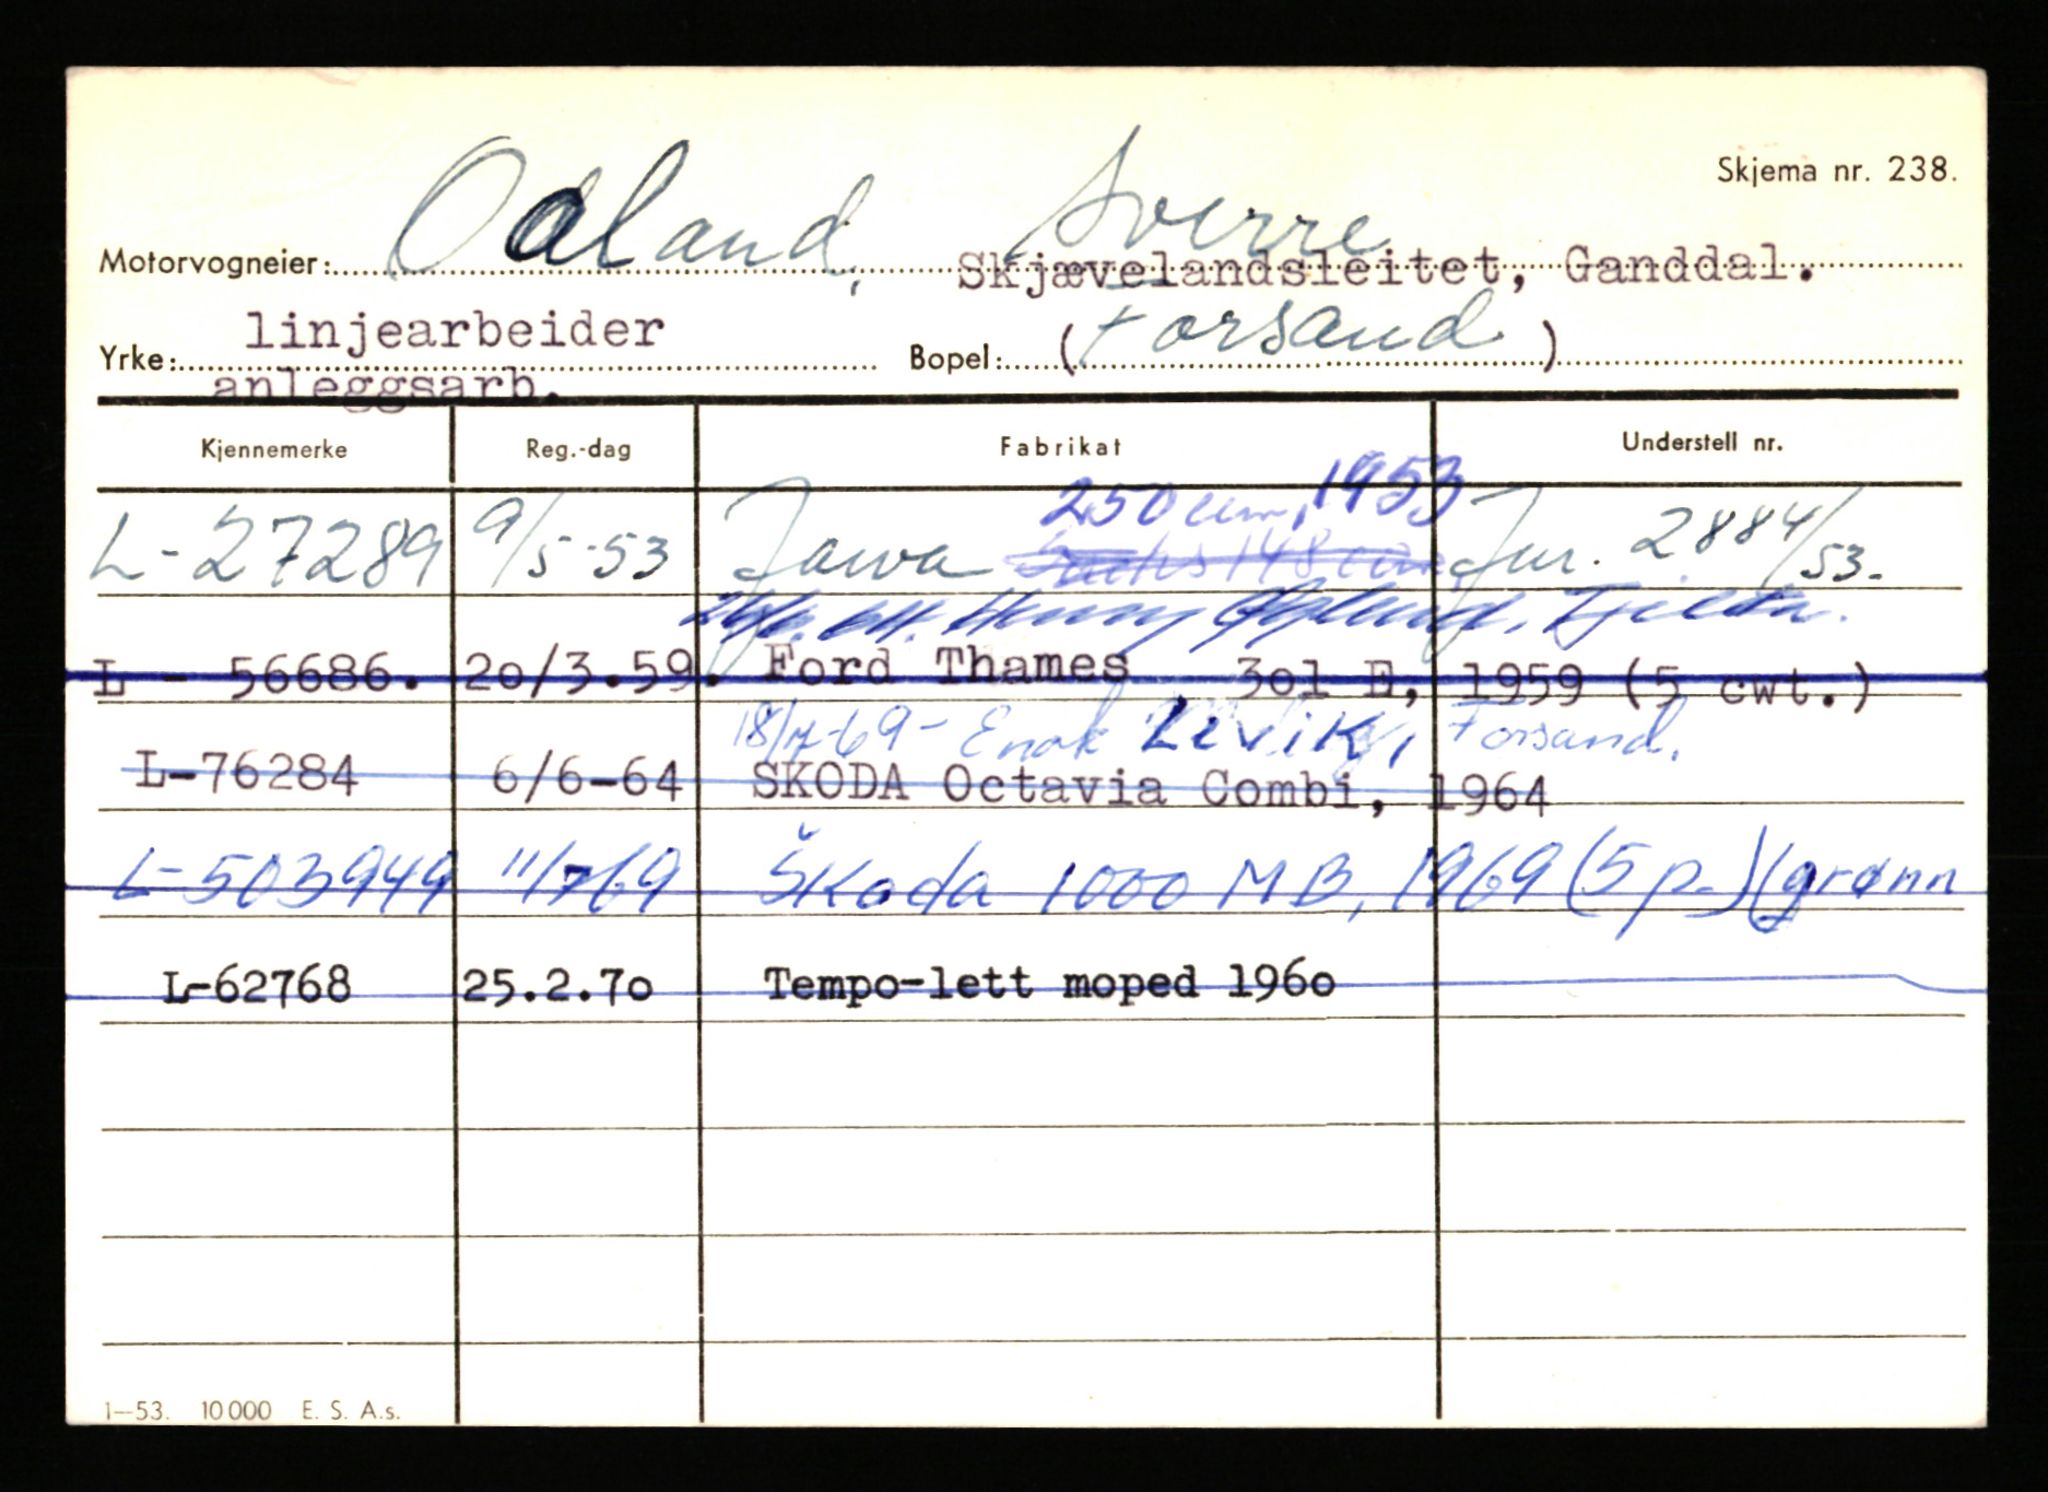 Skjema nr. 238.
Motorvogneier: Oaland, Sverre
Skjævelandsleitet, Ganddal.
Yrke: linjearbeider Bopel: (Forsand)
anleggsarb.
Kjennemerke Reg.-dag Fabrikat Understell nr.
250 ccm, 1953
L-27289 9/5-53 Jawa Sachs 148 ccm Jnr. 2884/53.
L - 56686. 20/3.59. Ford Thames 3ol E, 1959 (5 cwt.)
18/7-69 - Enok Levik, Forsand.
L-76284 6/6-64 SKODA Octavia Combi, 1964
L-503949 11/7-69 Škoda 1000 MB, 1969 (5 p.) (grønn
L-62768 25.2.7o Tempo-lett moped 196o
1-53. 10000 E. S. A.s.